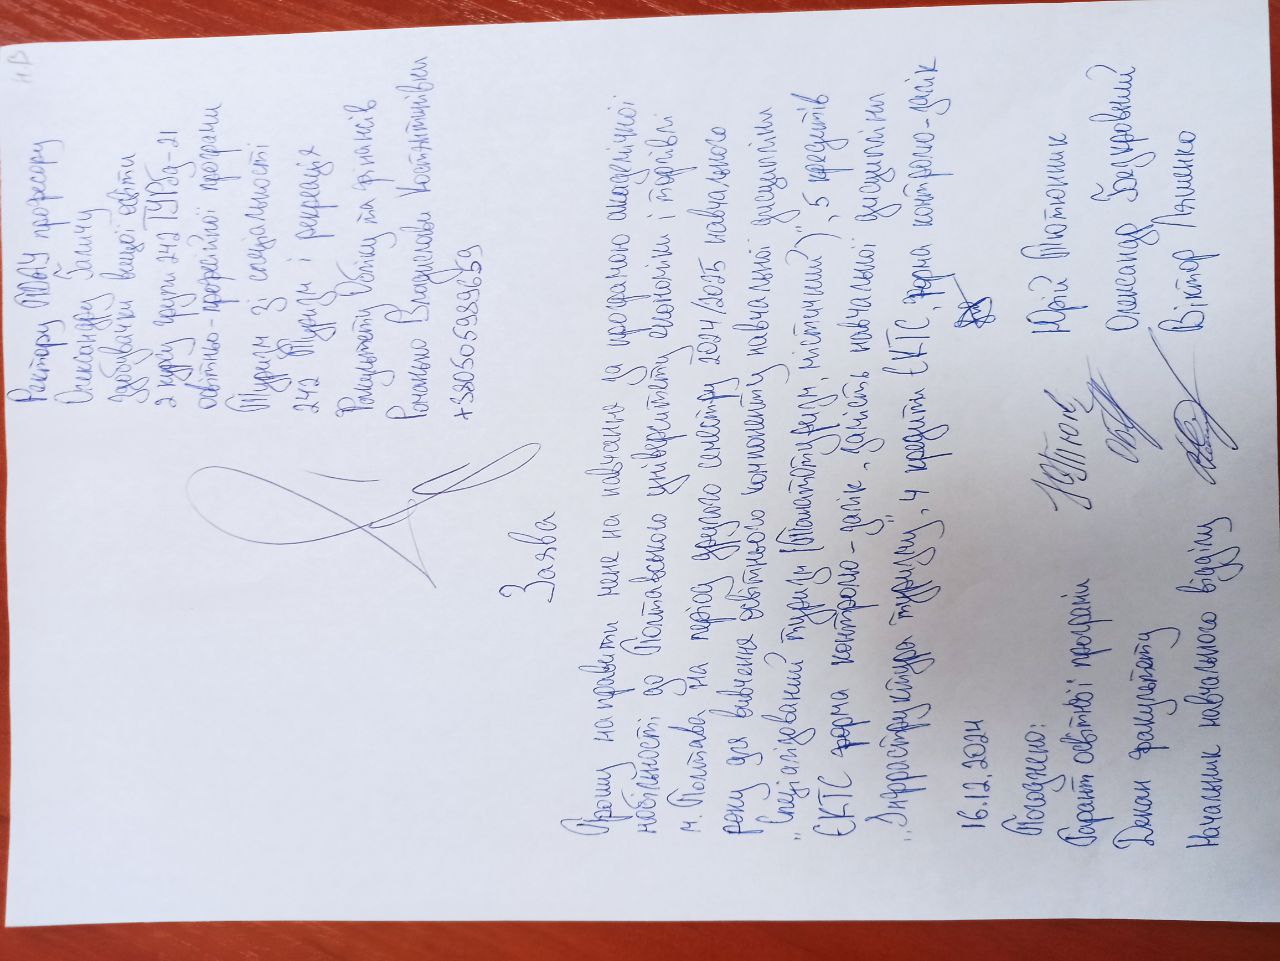 Н.В
Ректору ПДАУ професору
Олександру Галичу
Здобувачки вищої освіти
2 курсу групи 242 ТУРбд-21
освітньо-професійної програми
Туризм зі спеціальності
242 Туризм і рекреація
Факультету Обліку та фінансів
Романько Владислави Костянтинівни
+380505989659
Заява
Прошу направити мене на навчання за програмою академічної
мобільності до Полтавського університету економіки і торгівлі
м. Полтава на період другого семестру 2024/2025 навчального
року для вивчення освітнього компоненту навчальної дисципліни
"Спеціалізований туризм (Танатотуризм, містичний)", 5 кредитів
ЄКТС форма контролю - залік, замість навчальної дисципліни
"Інфраструктура туризму", 4 кредити ЄКТС, форма контролю - залік
16.12.2024
Погоджено:
Гарант освітньої програми Юрій Тютюнник
Декан факультету Олександр Безкровний
Начальник навчального відділу Віктор Ляшенко